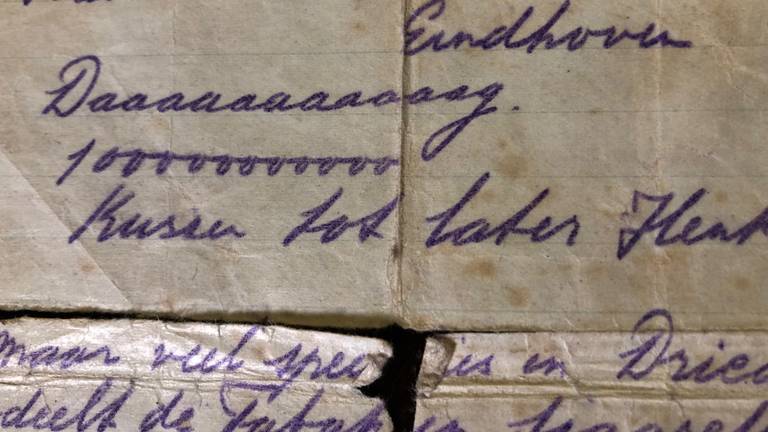 Eindhoven
Daaaaaaaaaaaag.
1000000000000
Kussen tot later Henk
maar veel in
deelt de Tabak en